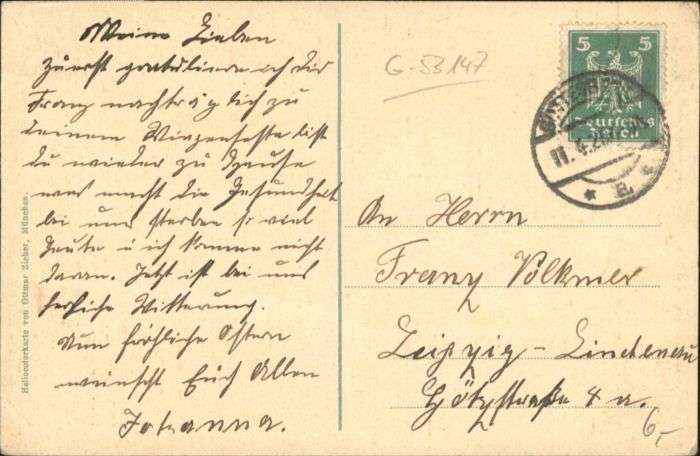 Meine Lieben
zuerst gratuliere ich dir
Franz nachträglich zu
deinem Wiegenfeste bist
du wieder zu Hause
was macht die Gesundheit
bei uns sterben so viel
Leute u ich komme nicht
daran. Jetzt ist bei uns
herrliche Witterung.
Nun fröhliche Ostern
wünscht Euch Allen
Johanna.
Heliocolorkarte von Ottmar Zieher, München.
G-53147
5 5
Deutsches
Reich
11.4.2
An Herrn
Franz Volkmer
Leipzig-Lindenau
Götzstraße 4 a.
6,-